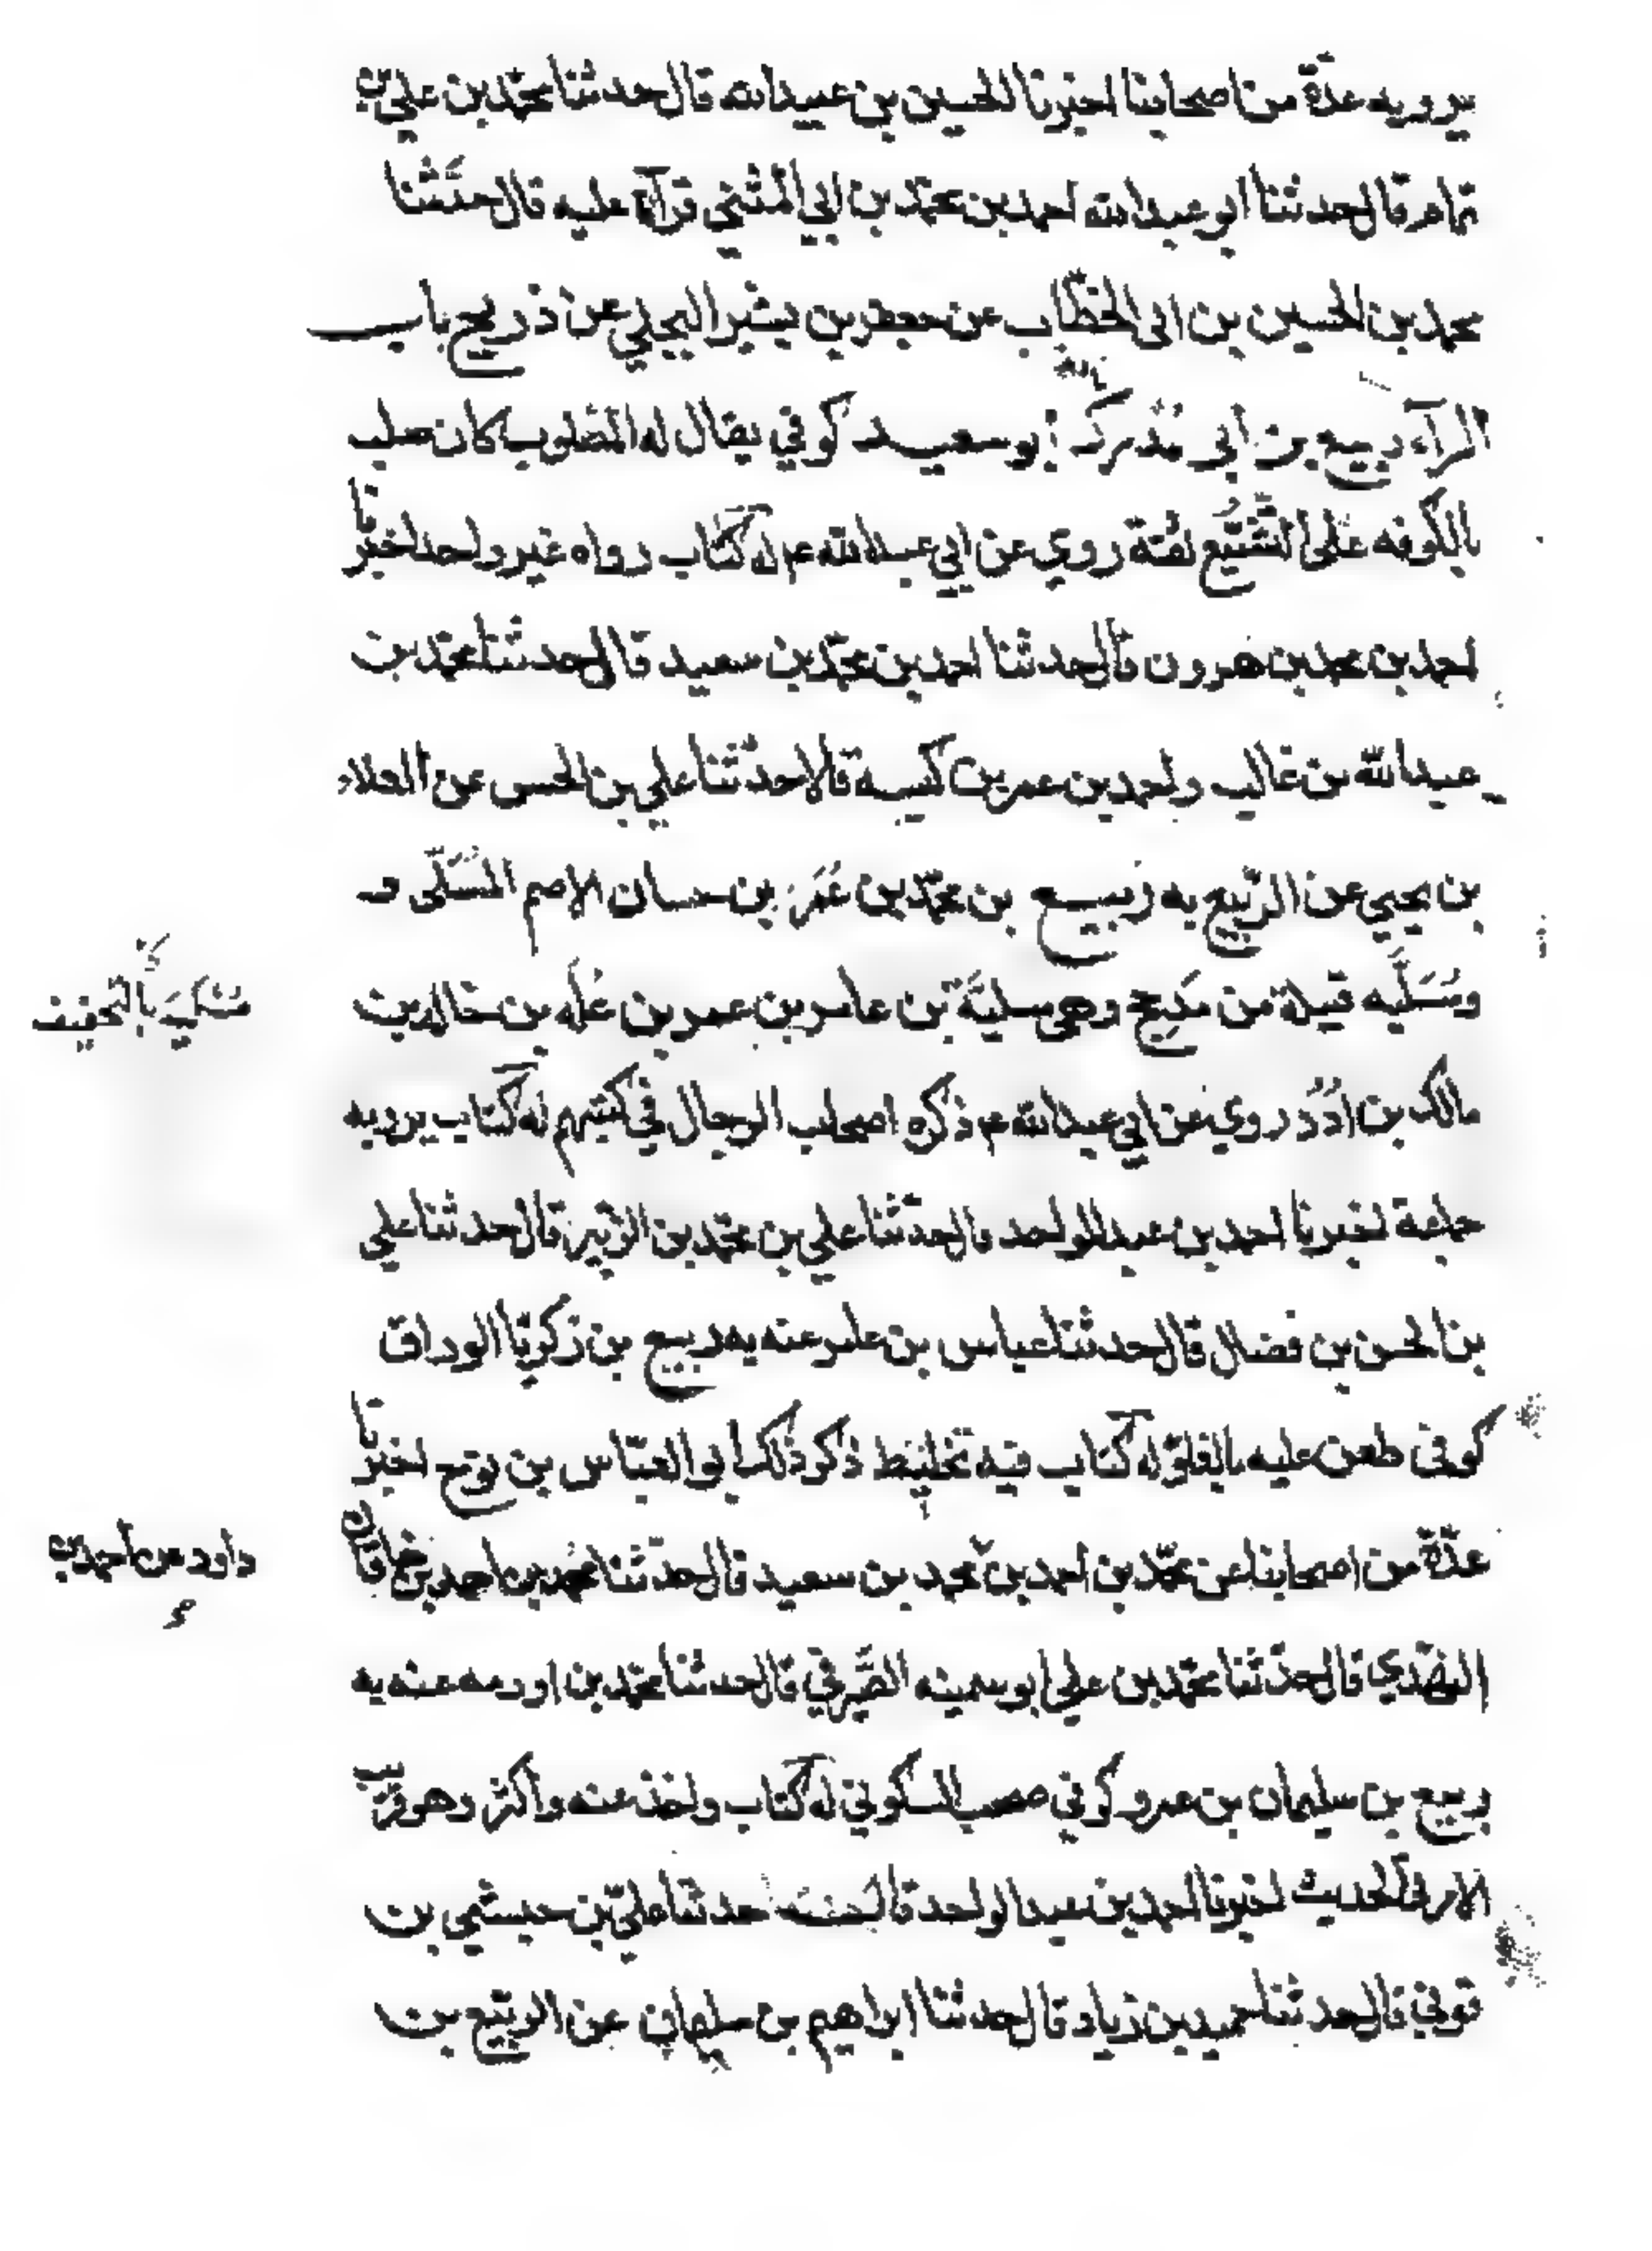 يرويه عدة من اصحابنا اخبرنا الحسين بن عبيدالله قال حدثنا محمد بن علي بن
تمام قال حدثنا ابو عبدالله احمد بن محمد بن ابي المثنى قرآءة عليه قال حدثنا
محمد بن الحسين بن ابى الخطاب عن جعفر بن بشير البجلي عن ذريح باب
الرآء ربيع بن ابى مدرك ابو سعيد كوفي يقال له المصلوب كان صلب
بالكوفه على التشيع ثقة روي عن ابي عبدالله عم له كتاب رواه غير واحد اخبرنا
احمد بن محمد بن هرون قال حدثنا احمد بن محمد بن سعيد قال حدثنا محمد بن
عبدالله بن غالب واحمد بن عمر بن كيسبة قالا حدثنا علي بن الحسن عن العلاء
بن يحيي عن الربيع به ربيع بن محمد بن عمر بن حسان الاصم المسلى و
ومسليه قبيلة من مذحج وهي مسلية بن عامر بن عمر بن عله بن خالد بن
مسلية بالتخفيف
مالك بن ادد روي عن ابي عبدالله عم ذكره اصحاب الرجال في كتبهم له كتاب يرويه
جماعة اخبرنا احمد بن عبدالواحد قال حدثنا علي بن محمد بن الزبير قال حدثنا علي
بن الحسن بن فضال قال حدثنا عباس بن عامر عنه به ربيع بن زكريا الوراق
كوفى طعن عليه بالغلو له كتاب فيه تخليط ذكر ذلك ابو العباس بن نوح اخبرنا
عدة من اصحابنا عن محمد بن احمد بن محمد بن سعيد قال حدثنا محمد بن احمد بن خاقان
داود عن احمد بن
النهدي قال حدثنا محمد بن علي ابو سمينه الصيرفي قال حدثنا محمد بن اورمه عنه به
ربيع بن سليمان بن عمرو كوفي صحب السكوني له كتاب واخذ عنه واكثر وهو قريب
الامر فى الحديث اخبرنا احمد بن عبدالواحد قال حدثنا علي بن حبشي بن
قوني قال حدثنا حميد بن زياد قال حدثنا ابراهيم بن سليمان عن الربيع بن